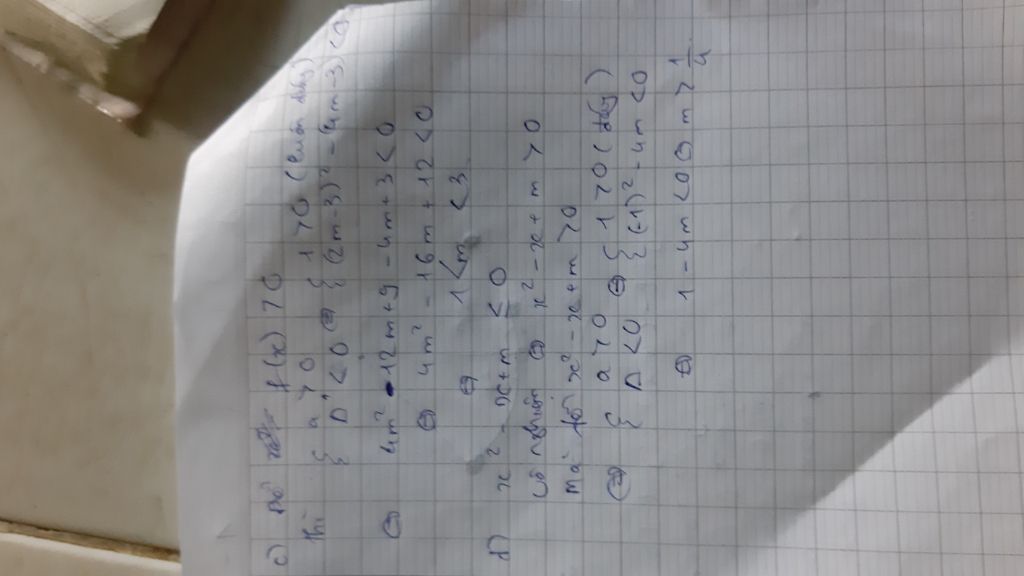 c) Để f(x) > 0
thì { a > 0 ⇔ { 1 > 0 (luôn đúng)
{ Δ' < 0 { (2m-3)² - (4m-3) < 0
⇔ 4m² - 12m + 9 - 4m + 3 < 0
⇔ 4m² - 16m + 12 < 0
⇔ 1 < m < 3
x² - x + m ≤ 0
Vô nghiệm ⇔ x² - x + m > 0
mà để x² - x + m > 0
⇔ { a > 0 ⇔ { 1 > 0 (đúng)
{ Δ < 0 { (-1)² - 4m < 0
⇔ 1 - 4m < 0 ⇔ m > 1/4